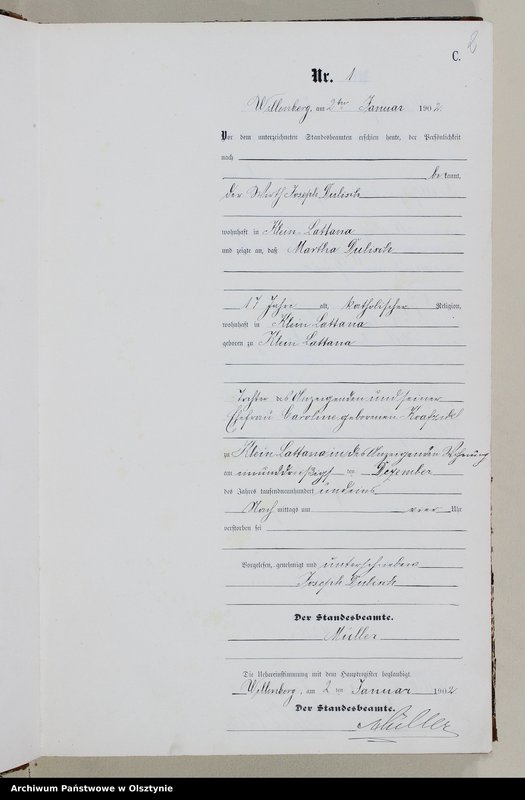 2
C.
Nr. 1
Willenberg, am 2ten Januar 1902.
Vor dem unterzeichneten Standesbeamten erschien heute, der Persönlichkeit
nach
be kannt,
der Wirth Joseph
wohnhaft in Klein Lattana
und zeigte an, daß Martha
17 Jahre alt, katholischer Religion,
wohnhaft in Klein Lattana
geboren zu Klein Lattana
Tochter des Anzeigenden und seiner
Ehefrau Caroline geborenen
zu Klein Lattana in des Anzeigenden Wohnung
am einunddreißigst ten Dezember
des Jahres tausendneunhundert undeins
Nach mittags um vier Uhr
verstorben sei
Vorgelesen, genehmigt und unterschrieben
Joseph
Der Standesbeamte.
Müller
Die Uebereinstimmung mit dem Hauptregister beglaubigt.
Willenberg, am 2 ten Januar 1902
Der Standesbeamte.
Müller
Archiwum Państwowe w Olsztynie